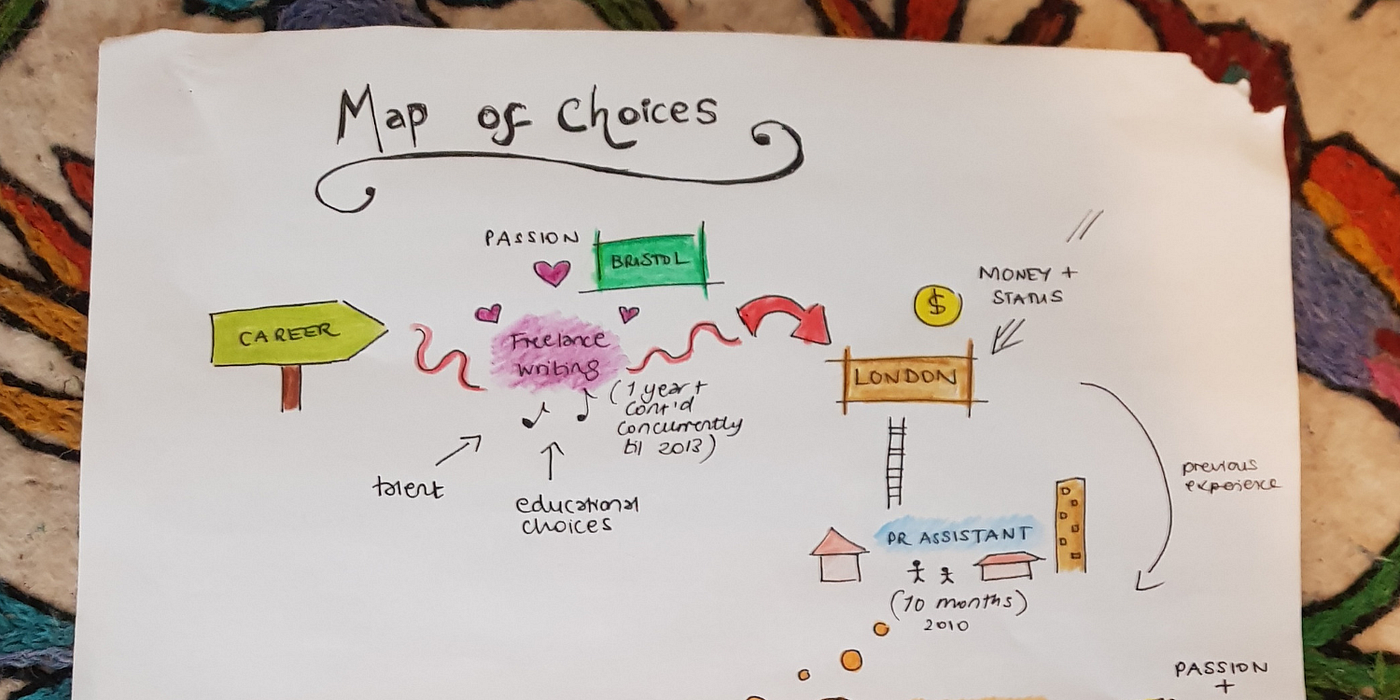 Map of Choices
PASSION
BRISTOL
CAREER
Freelance
writing
(1 year +
cont'd
concurrently
til 2013)
talent
educational
choices
$
MONEY +
STATUS
LONDON
previous
experience
PR ASSISTANT
(10 months)
2010
PASSION
+